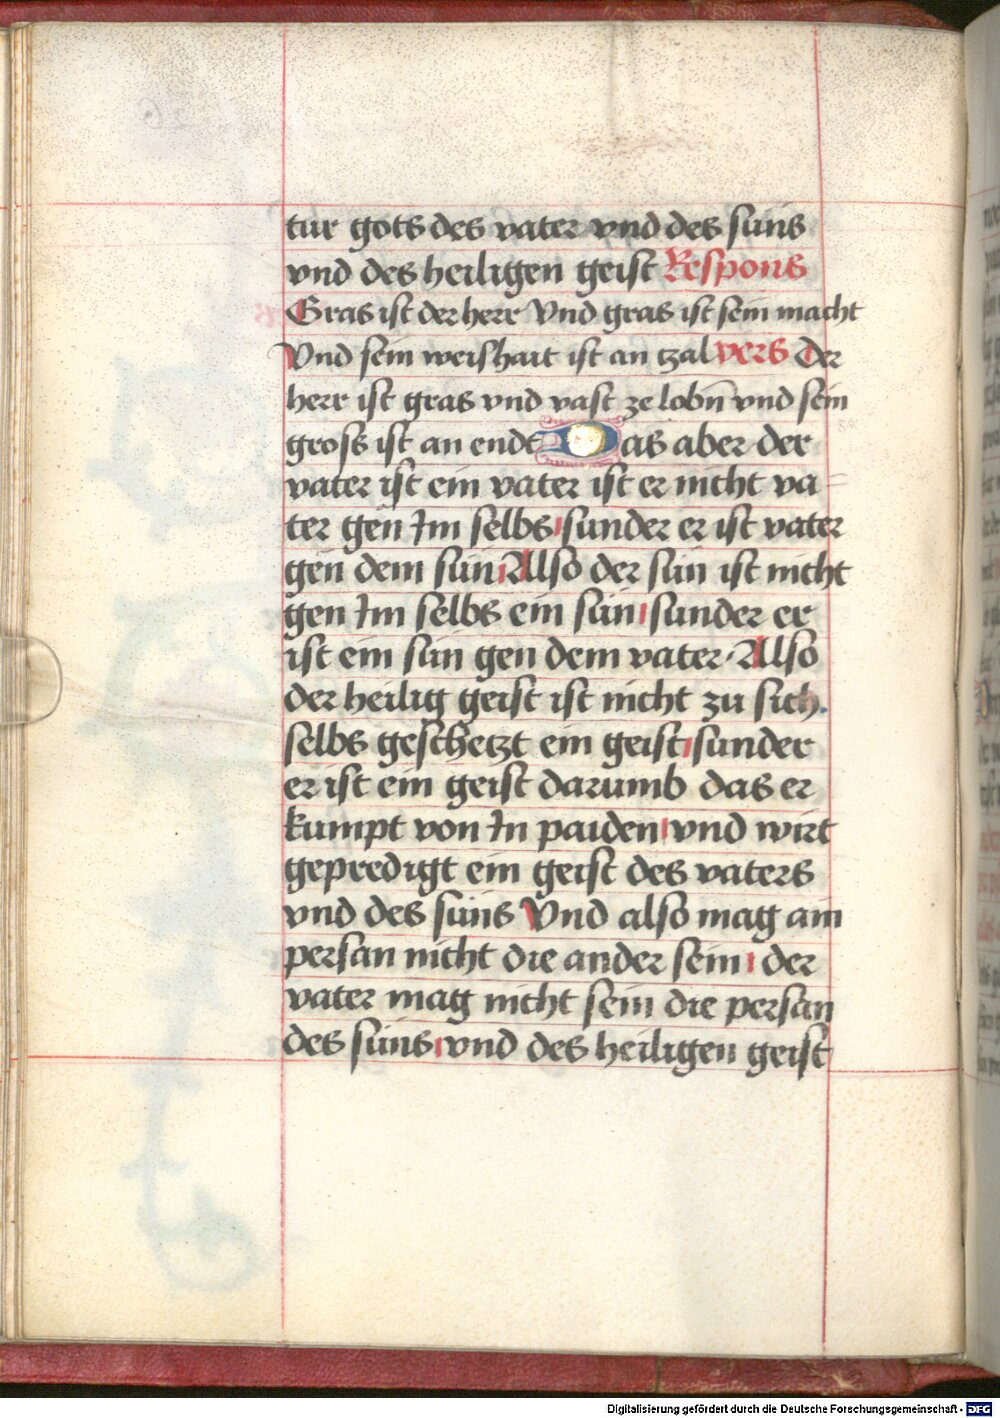 tur gots des vater vnd des suns
vnd des heiligen geist Respons
Gras ist der herr Vnd gras ist sein macht
Vnd sein weishait ist an tzal vers Der
herr ist gras vnd vast ze lobn̄ vnd sein
gross ist an endt Das aber der
vater ist ein vater ist er nicht va-
ter gen Im selbs sunder er ist vater
gen dem sun Also der sun ist nicht
gen Im selbs ein sun sunder er
ist ein sun gen dem vater · Also
der heilig geist ist nicht zu sich
selbs geschetzt ein geist sunder
er ist ein geist darumb das er
kumpt von In paiden vnd wirt
gepredigt ein geist des vaters
vnd des suns Vnd also mag ain
persan nicht die ander sein der
vater mag nicht sein die persan
des suns vnd des heiligen geist
Digitalisierung gefördert durch die Deutsche Forschungsgemeinschaft - DFG